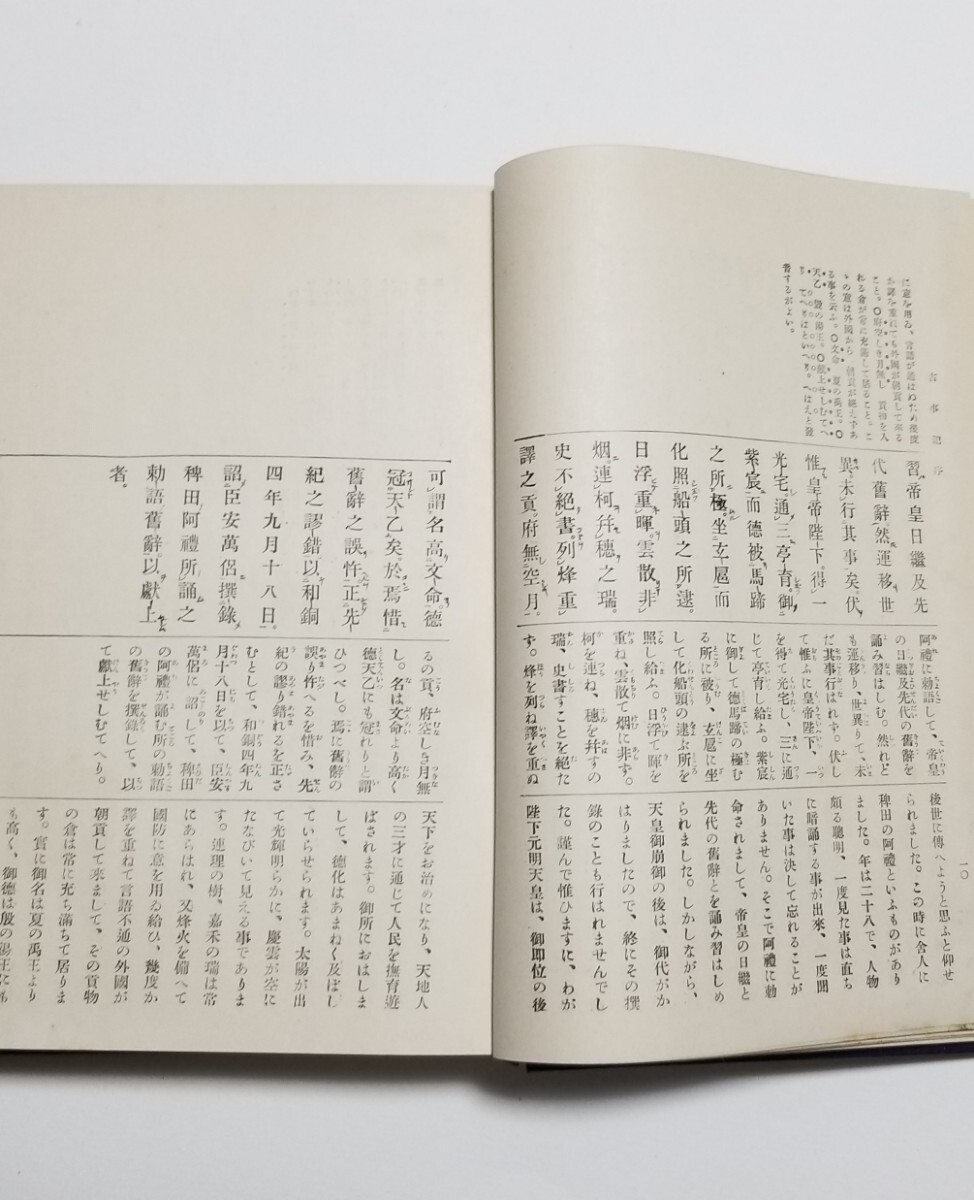 古事記 序
に意を用ゐ、言語が通はぬため幾度
か譯を重ねても外國が朝貢して來る
こと。〇府空しき月無し 貢物を入
れる倉が常に充滿して居ること。こ
ゝの意は外國から、朝貢が繼えずあ
る事を云ふ。〇文命 夏の禹王。〇
天乙 殷の湯王。〇獻上せしむてへ
り てへりはといへり。へはえと發
音するがよい。
習帝皇日繼及先
代舊辭然運移世
異未行其事矣。伏
惟皇帝陛下。得一
光宅。通三亭育。御
紫宸而德被馬蹄
之所極。坐玄扈而
化照船頭之所逮
日浮重暉。雲散非
烟。連柯幷穗之瑞。
史不絕書。列烽重
譯之貢。府無空月。
阿禮に勅語して、帝皇
の日繼及先代の舊辭を
誦み習はしむ。然れど
も運移り、世異りて、未
だ其事行はれず。伏し
て惟ふに皇帝陛下、一
を得て光宅し、三に通
じて亭育し給ふ。紫宸
に御して德馬蹄の極む
る所に被り、玄扈に坐
して化船頭の逮ぶ所を
照し給ふ。日浮て暉を
重ね、雲散て烟に非ず。
柯を連ね、穗を幷すの
瑞、史書すことを絕た
ず。烽を列ね譯を重ぬ
一〇
後世に傳へようと思ふと仰せ
られました。この時に舍人に
稗田の阿禮といふものがあり
ました。年は二十八で、人物
頗る聰明、一度見た事は直ち
に暗誦する事が出來、一度聞
いた事は決して忘れることが
ありません。そこで阿禮に勅
命されまして、帝皇の日繼と
先代の舊辭とを誦み習はしめ
られました。しかしながら、
天皇御崩御の後は、御代がか
はりましたので、終にその撰
錄のことも行はれませんでし
た。謹んで惟ひますに、わが
陛下元明天皇は、御卽位の後
可謂名高文命。德
冠天乙矣。於焉惜
舊辭之誤忤正先
紀之謬錯以和銅
四年九月十八日
詔臣安萬侶撰錄
稗田阿禮所誦之
勅語舊辭以獻上
者。
るの貢、府空しき月無
し。名は文命より高く
德天乙にも冠れりと謂
ひつべし。焉に舊辭の
誤り忤へるを惜み、先
紀の謬り錯れるを正さ
むとして、和銅四年九
月十八日を以て、臣安
萬侶に詔して、稗田
の阿禮が誦む所の勅語
の舊辭を撰錄して、以
て獻上せしむてへり。
天下をお治めになり、天地人
の三才に通じて人民を撫育遊
ばされます。御所におはしま
して、德化はあまねく及ぼし
ていらせられます。太陽が出
て光輝明らかに、慶雲が空に
たなびいて見える事でありま
す。連理の樹、嘉禾の瑞は常
にあらはれ、又烽火を備へて
國防に意を用ゐ給ひ、幾度か
譯を重ねて言語不通の外國が
朝貢して來まして、その貢物
の倉は常に充ち滿ちて居りま
す。實に御名は夏の禹王より
も高く、御德は殷の湯王にも